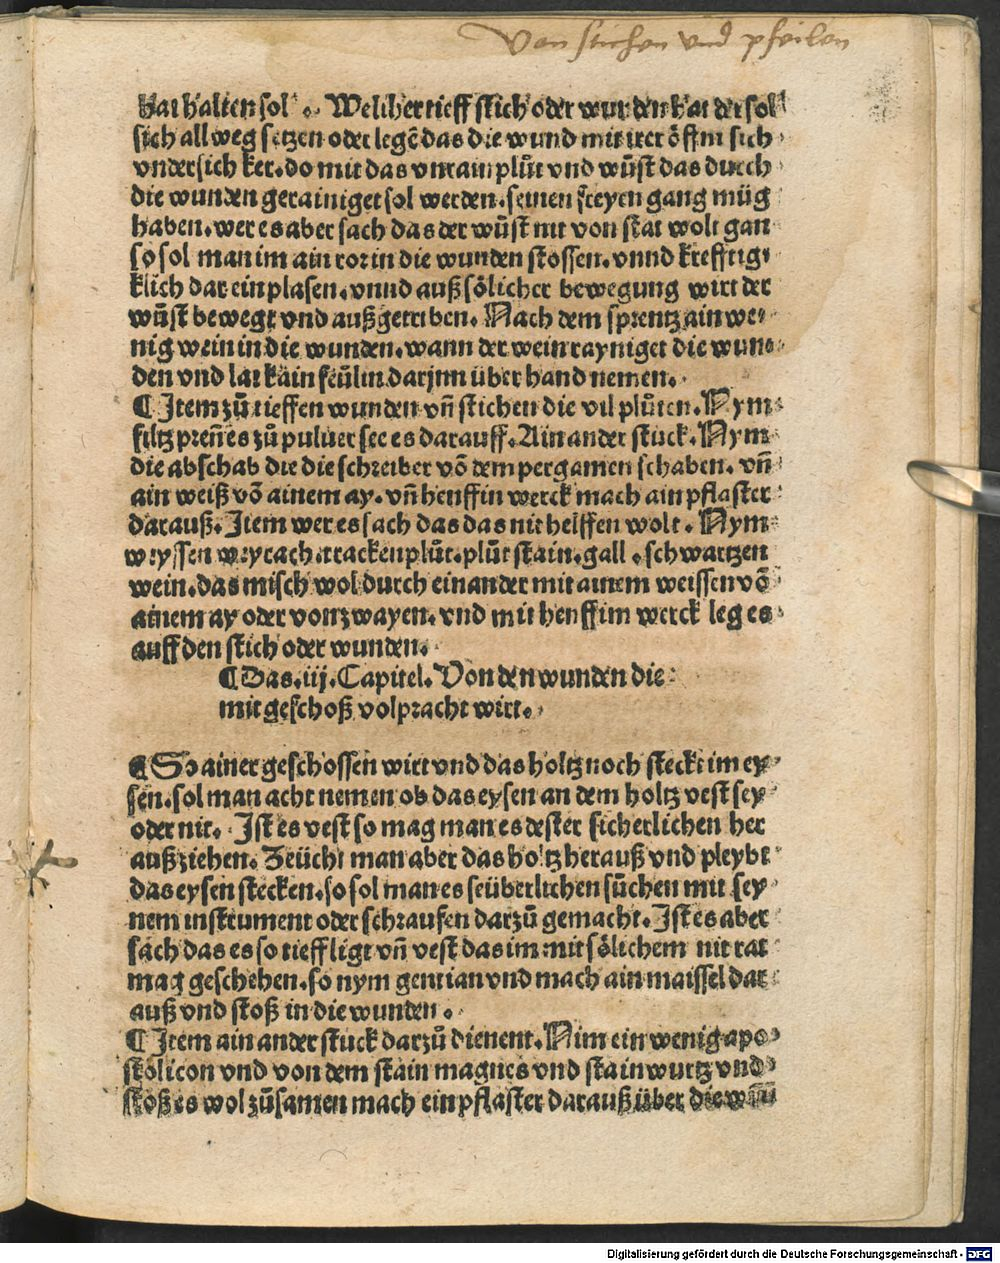 Von stichen vnd pfeilen
hat halten sol. Welicher tieff stich oder wunden hat der sol
sich allweg setzen oder legē das die wund mit irer öffnı sich
vndersich ker. do mit das vnrain plůt vnd wůst das durch
die wunden gerainiget sol werden. seinen freyen gang müg
haben. wer es aber sach das der wůst nit von stat wolt gan
so sol man im ain ror in die wunden stossen. vnnd krefftig
klich dar ein plasen. vnnd auß sölicher bewegung wirt der
wůst bewegt vnd außgetriben. Nach dem sprentz ain we-
nig wein in die wunden. wann der wein rayniget die wun-
den vnd lat kain feülin darjnn über hand nemen.
¶ Item zů tieffen wunden vñ stichen die vil plůten. Nym
filtz preñ es zů puluer see es darauff. Ain ander stuck. Nym
die abschab die die schreiber vō dem pergamen schaben. vñ
ain weiß vō ainem ay. vñ henffin werck mach ain pflaster
darauß. Item wer es sach das das nit helffen wolt. Nym
weyssen weyrach. trackenplůt. plůt stain. gall. schwartzen
wein. das misch wol durch einander mit ainem weissen vō
ainem ay oder von zwayen. vnd mit henffim werck leg es
auff den stich oder wunden.
¶ Das .iij. Capitel. Von den wunden die
mit geschoß volpracht wirt.
¶ So ainer geschossen wirt vnd das holtz noch steckt im ey-
sen. sol man acht nemen ob das eysen an dem holtz vest sey
oder nit. Ist es vest so mag man es dester sicherlichen her
auß ziehen. Zeücht man aber das holtz herauß vnd pleybt
das eysen stecken. so sol man es seüberlichen sůchen mit sey
nem instrument oder schraufen darzů gemacht. Ist es aber
sach das es so tieff ligt vñ vest das im mit sölichem nit rat
mag geschehen. so nym gentian vnd mach ain maissel dar
auß vnd stoß in die wunden.
¶ Item ain ander stuck darzů dienent. Nim ein wenig apo-
stolicon vnd von dem stain magnes vnd stainwurtz vnd
stoß es wol zůsamen mach ein pflaster darauß über die
Digitalisierung gefördert durch die Deutsche Forschungsgemeinschaft - DFG